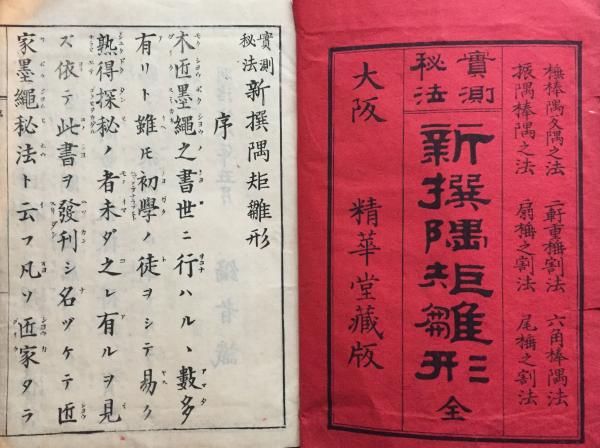 棰棒隅之法
二軒重棰割法
六角棒隅法
振隅棒隅之法
扇棰之割法
尾棰之割法
實測
秘法
新撰隅矩雛形 全
大阪 精華堂藏版
實測
秘法
新撰隅矩雛形
序
木匠墨繩之書世ニ行ハルヽ數多
有リト雖𪜈初學ノ徒ヲシテ易ク
熟得探秘ノ者未ダ之レ有ルヲ見
ズ依テ此書ヲ發刊シ名ヅケテ匠
家墨繩秘法ト云フ凡ソ匠家タラ